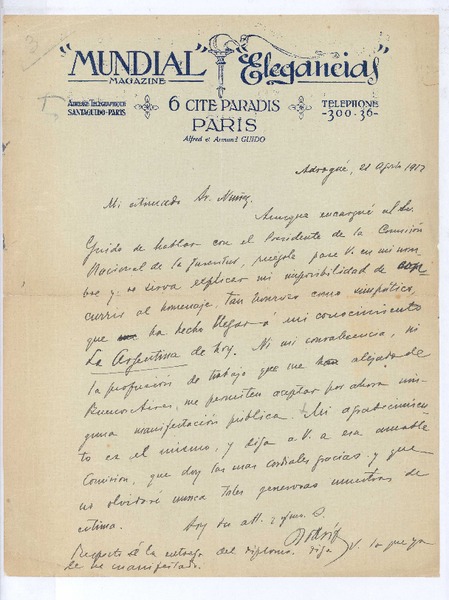 3
"MUNDIAL" "Elegancias"
MAGAZINE
ADRESSE TÉLÉGRAPHIQUE 6 CITE PARADIS TELEPHONE
SANTAGUIDO-PARIS PARIS -300-36-
Alfred et Armand GUIDO
Adrogué, 21 Agosto 1912
Mi estimado Sr. Núñez,
Aunque encargué al Sr.
Guido de hablar con el Presidente de la Comisión
Nacional de la Juventud, ruégole pase V. en mi nom-
bre y se sirva explicar mi imposibilidad de con-
currir al homenaje, tan honroso como simpático,
que ha hecho llegar á mi conocimiento
La Argentina de hoy. Ni mi convalecencia, ni
la profusión de trabajo que me han alejado de
Buenos Aires, me permiten aceptar por ahora nin-
guna manifestación pública. Mi agradecimien-
to es el mismo, y diga a V. a esa amable
Comisión, que doy las mas cordiales gracias y que
no olvidaré nunca tales generosas muestras de
estima. Soy su att. y S.
Respecto á la entrega del diploma, diga V. lo que ya
le he manifestado.